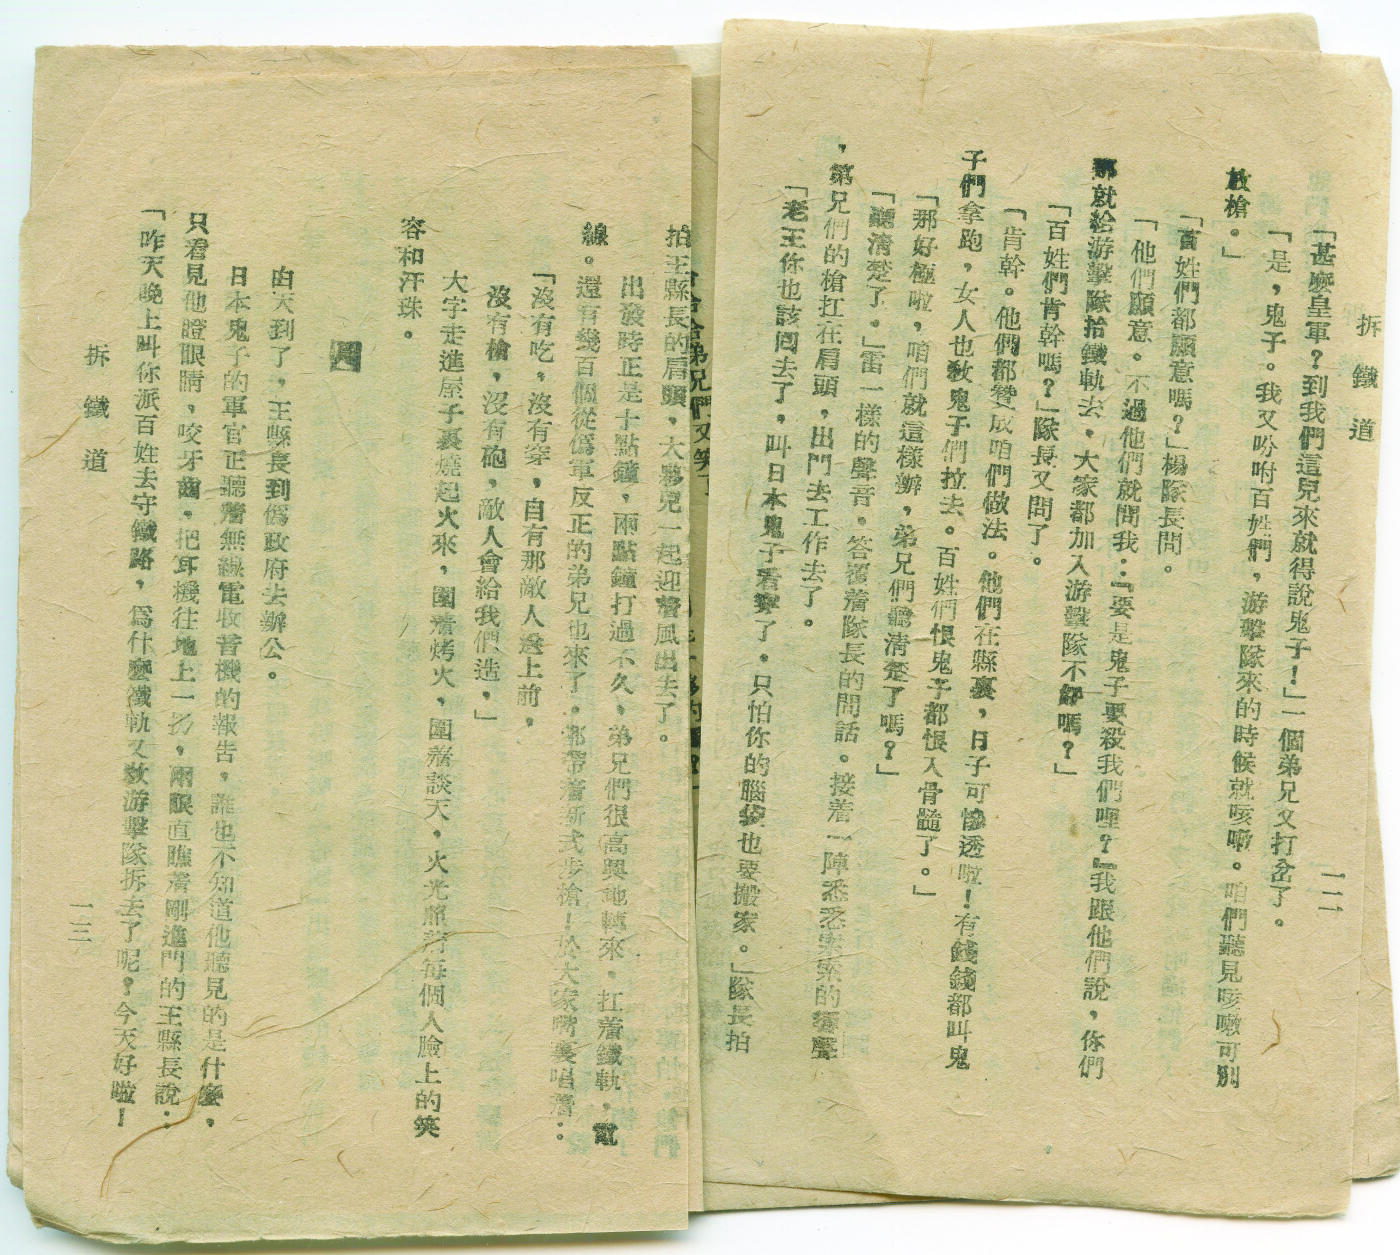 拆鐵道
一二
「甚麼皇軍？到我們這兒來就得說鬼子！」一個弟兄又打岔了。
「是，鬼子。我又吩咐百姓們，游擊隊來的時候就咳嗽。咱們聽見咳嗽可別
放槍。」
「百姓們都願意嗎？」楊隊長問。
「他們願意。不過他們就問我：『要是鬼子要殺我們哩？』我跟他們說，你們
那就給游擊隊抬鐵軌去，大家都加入游擊隊不好嗎？」
「百姓們肯幹嗎？」隊長又問了。
「肯幹。他們都贊成咱們做法。他們在縣裏，日子可慘透啦！有錢錢都叫鬼
子們拿跑，女人也敎鬼子們拉去。百姓們恨鬼子都恨入骨髓了。」
「那好極啦，咱們就這樣辦，弟兄們聽清楚了嗎？」
「聽清楚了。」雷一樣的聲音。答覆着隊長的問話。接着一陣悉悉索索的聲
，弟兄們的槍扛在肩頭，出門去工作去了。
「老王你也該囘去了，叫日本鬼子看穿了。只怕你的腦袋也要搬家。」隊長拍
拍王縣長的肩頭，大夥兒一起迎着風出去了。
出發時正是十點鐘，兩點鐘打過不久，弟兄們很高興地轉來。扛着鐵軌，電
線。還有幾百個從僞軍反正的弟兄也來了。都帶着新式步槍！於大家嘴裏唱着：。
「沒有吃，沒有穿，自有那敵人送上前，
沒有槍，沒有砲，敵人會給我們造，」
大字走進屋子裏燒起火來，圍着烤火，圍着談天，火光照着每個人臉上的笑
容和汗珠。
四
白天到了，王縣長到僞政府去辦公。
日本鬼子的軍官正聽着無線電收音機的報告，誰也不知道他聽見的是什麼，
只看見他瞪眼睛，咬牙齒，把耳機往地上一扔，兩眼直瞧着剛進門的王縣長說：
「昨天晚上叫你派百姓去守鐵路，爲什麼鐵軌又敎游擊隊拆去了呢？今天好啦！
拆鐵道
一三